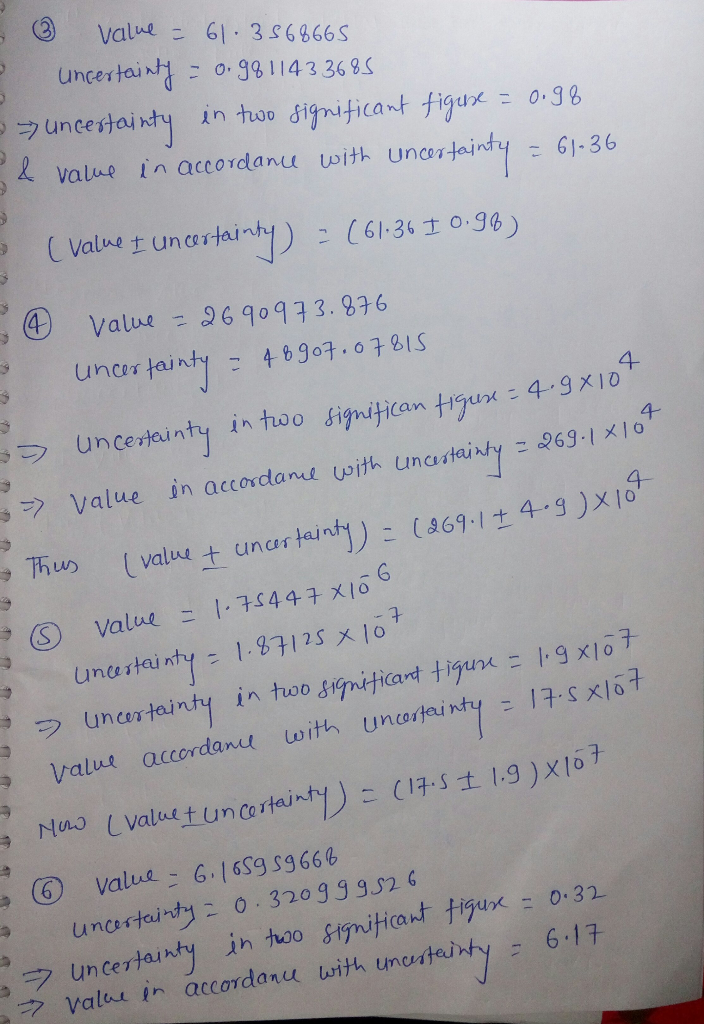 ③ Value = 61.3568665
Uncertainty = 0.9811433685
⇒ uncertainty in two significant figure = 0.98
& value in accordance with uncertainty = 61.36
(Value ± uncertainty) = (61.36 ± 0.98)
④ Value = 2690973.876
uncertainty = 48907.07815
⇒ uncertainty in two significan figure = 4.9 × 10⁴
⇒ Value in accordance with uncertainty = 269.1 × 10⁴
Thus (value ± uncertainty) = (269.1 ± 4.9) × 10⁴
⑤ Value = 1.75447 × 10⁻⁶
uncertainty = 1.87125 × 10⁻⁷
⇒ uncertainty in two significant figure = 1.9 × 10⁻⁷
Value accordance with uncertainty = 17.5 × 10⁻⁷
Now (value ± uncertainty) = (17.5 ± 1.9) × 10⁻⁷
⑥ Value = 6.165959668
uncertainty = 0.320999526
⇒ uncertainty in two significant figure = 0.32
⇒ value in accordance with uncertainty = 6.17